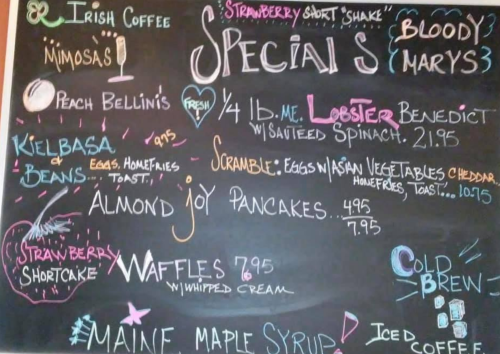 Irish Coffee
Strawberry Short "Shake"
Specials
Bloody
Marys
Mimosas
Peach Bellini's
Fresh!
1/4 lb. ME. Lobster Benedict
w/ Sauteed Spinach. 21.95
Kielbasa 9.95
&
Beans
Eggs. Homefries
Toast...
Scramble: Eggs w/ Asian Vegetables Cheddar
Homefries, Toast... 10.75
Almond Joy Pancakes... 4.95
7.95
Strawberry
Shortcake
Waffles 7.95
w/ Whipped Cream
Cold
Brew
Maine Maple Syrup!
Iced
Coffee